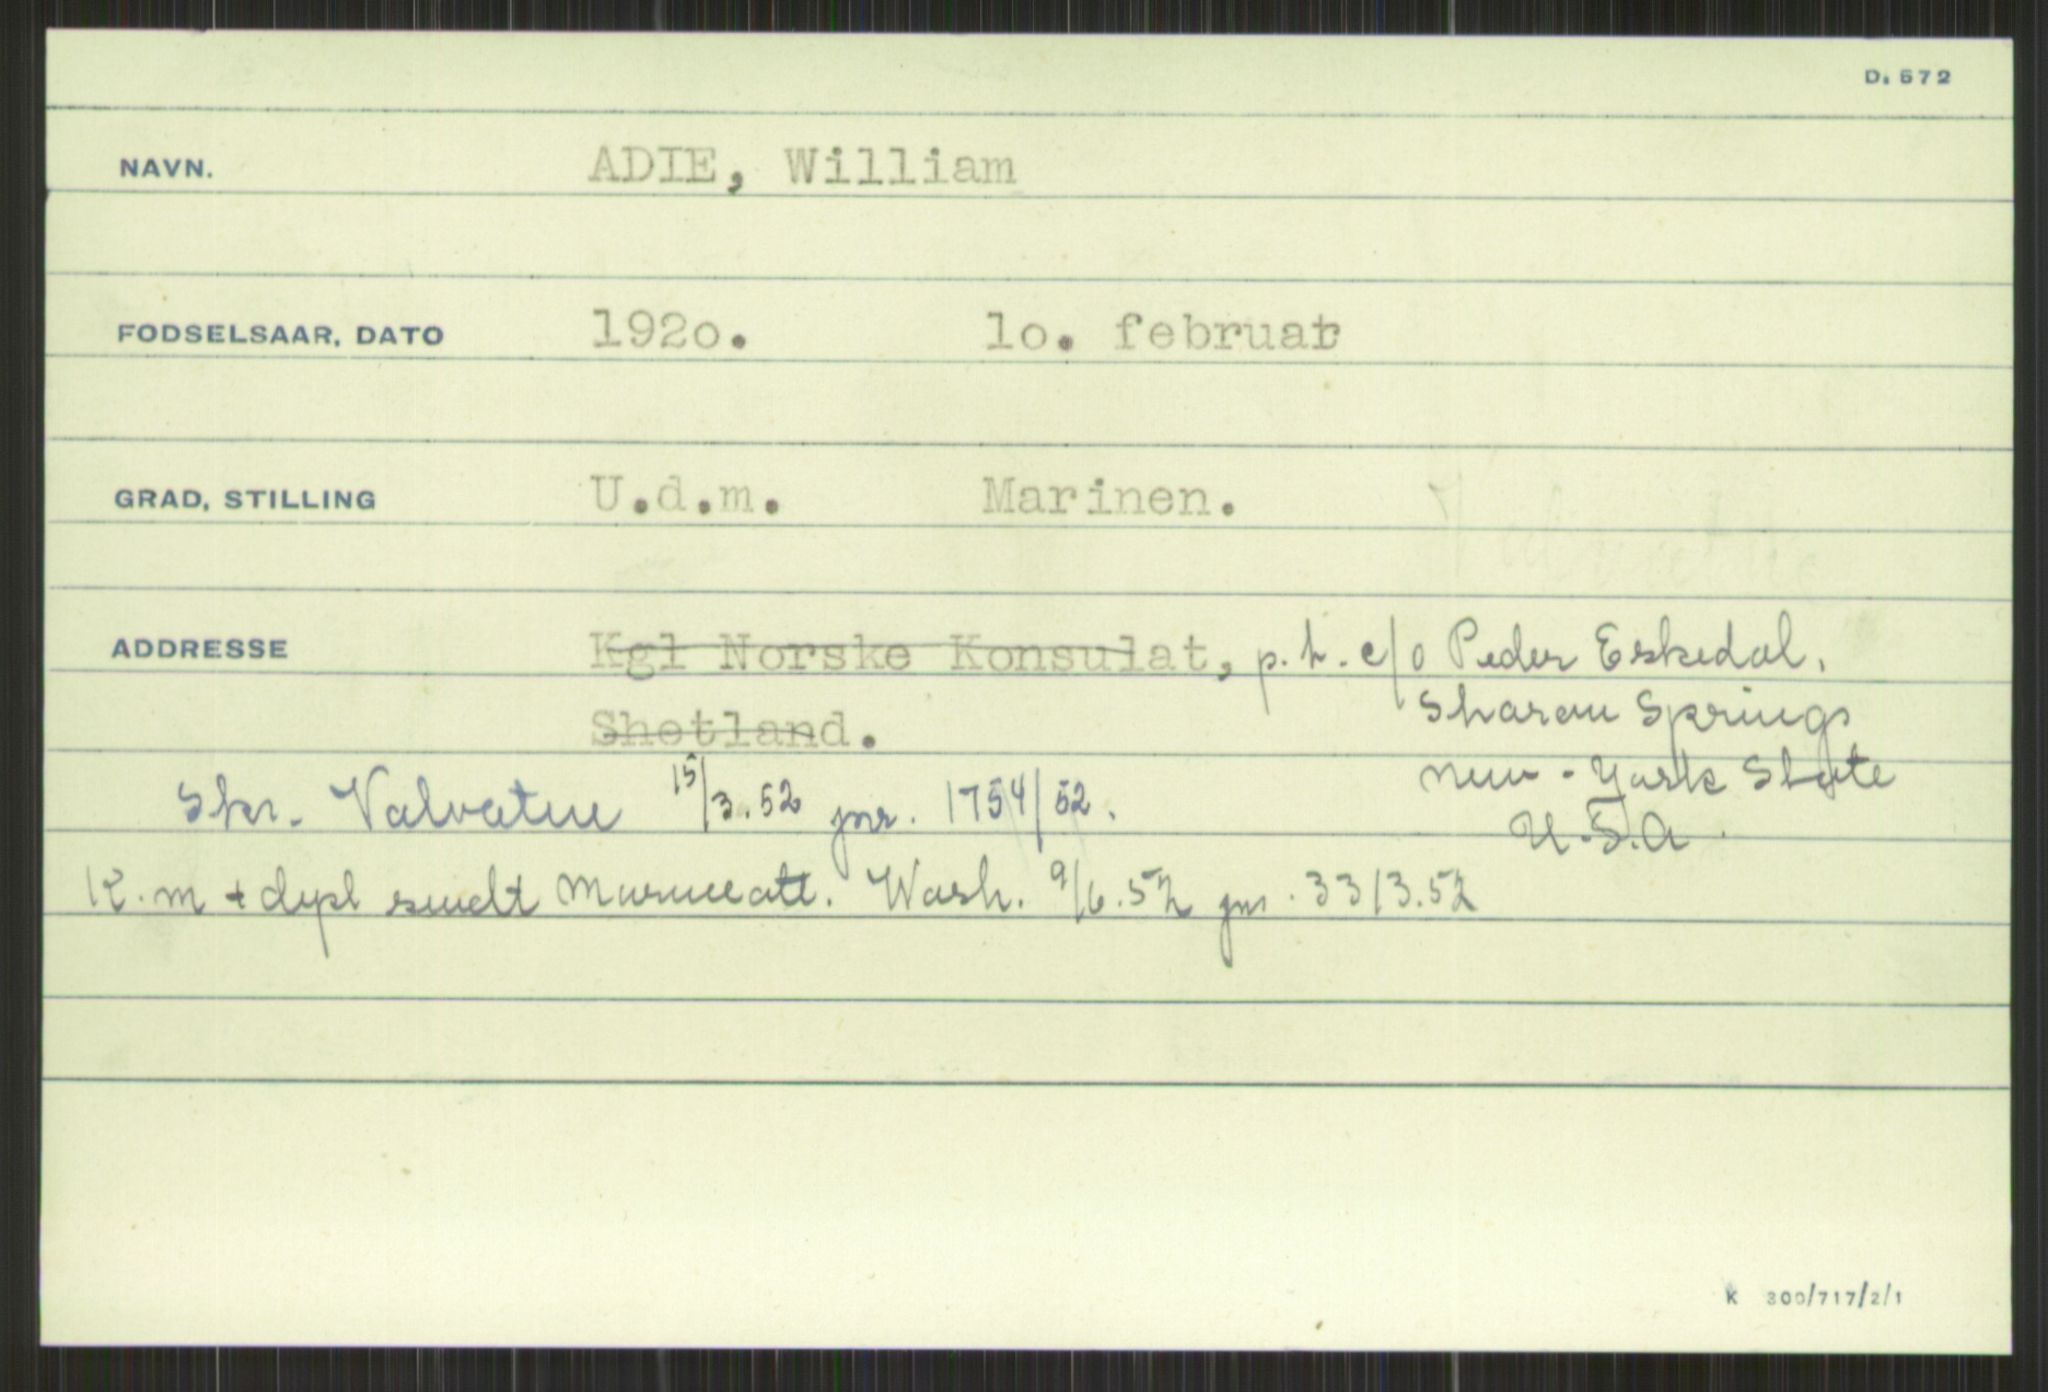 D. 572
NAVN. ADIE, William
FODSELSAAR, DATO 192o. 1o. februar
GRAD, STILLING U.d.m. Marinen.
ADDRESSE Kgl Norske Konsulat, p.t. c/o Peder Eskedal,
Shetland. Sharon Springs
New-York State
Skr. Valvatne 15/3.52 jnr. 1754/52.
U.S.A.
K.m + dipl sendt Marineatt. Wash. 9/6.52 jnr. 3313.52
K 300/717/2/1